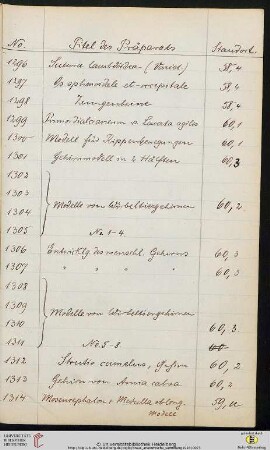 No. Titel des Präparats Standort
1296 Sutura lambdoidea 58,4
1297 Os sphenoidale et occipitale 58,4
1298 58,4
1299 Primordialcranium v. Lacerta agilis 60,1
1300 Modell für Rippenbewegungen 60,1
1301 Gehirnmodell in 2 Hälften 60,3
1302
1303
1304 Modelle von Wirbeltiergehirnen 60,2
1305 No 1-4
1306 Entwicklg. des menschl. Gehirns 60,3
1307 " " " " 60,3
1308
1309
1310 Modelle von Wirbeltiergehirnen 60,3
1311 No 5-8 60
1312 Struthio camelus, Gehirn 60,2
1313 Gehirn von Amia calva 60,2
1314 Mesencephalon + Medulla oblong. 59,
Modell
UNIVERSITÄTS-BIBLIOTHEK HEIDELBERG
© Universitätsbibliothek Heidelberg